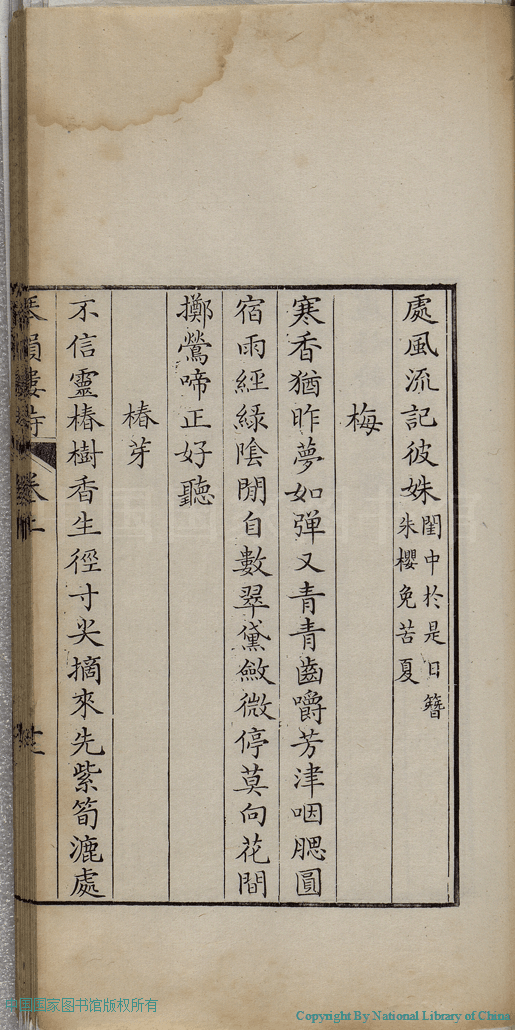 處風流記彼姝閨中於是日簪
朱櫻免苦夏
梅
寒香猶昨夢如彈又青青齒嚼芳津咽腮圓
宿雨經綠陰閒自數翠黛斂微停莫向花間
擲鶯啼正好聽
椿芽
不信靈椿樹香生徑寸尖摘來先紫筍漉處
琴韻樓詩 卷上
中国国家图书馆版权所有
Copyright By National Library of China